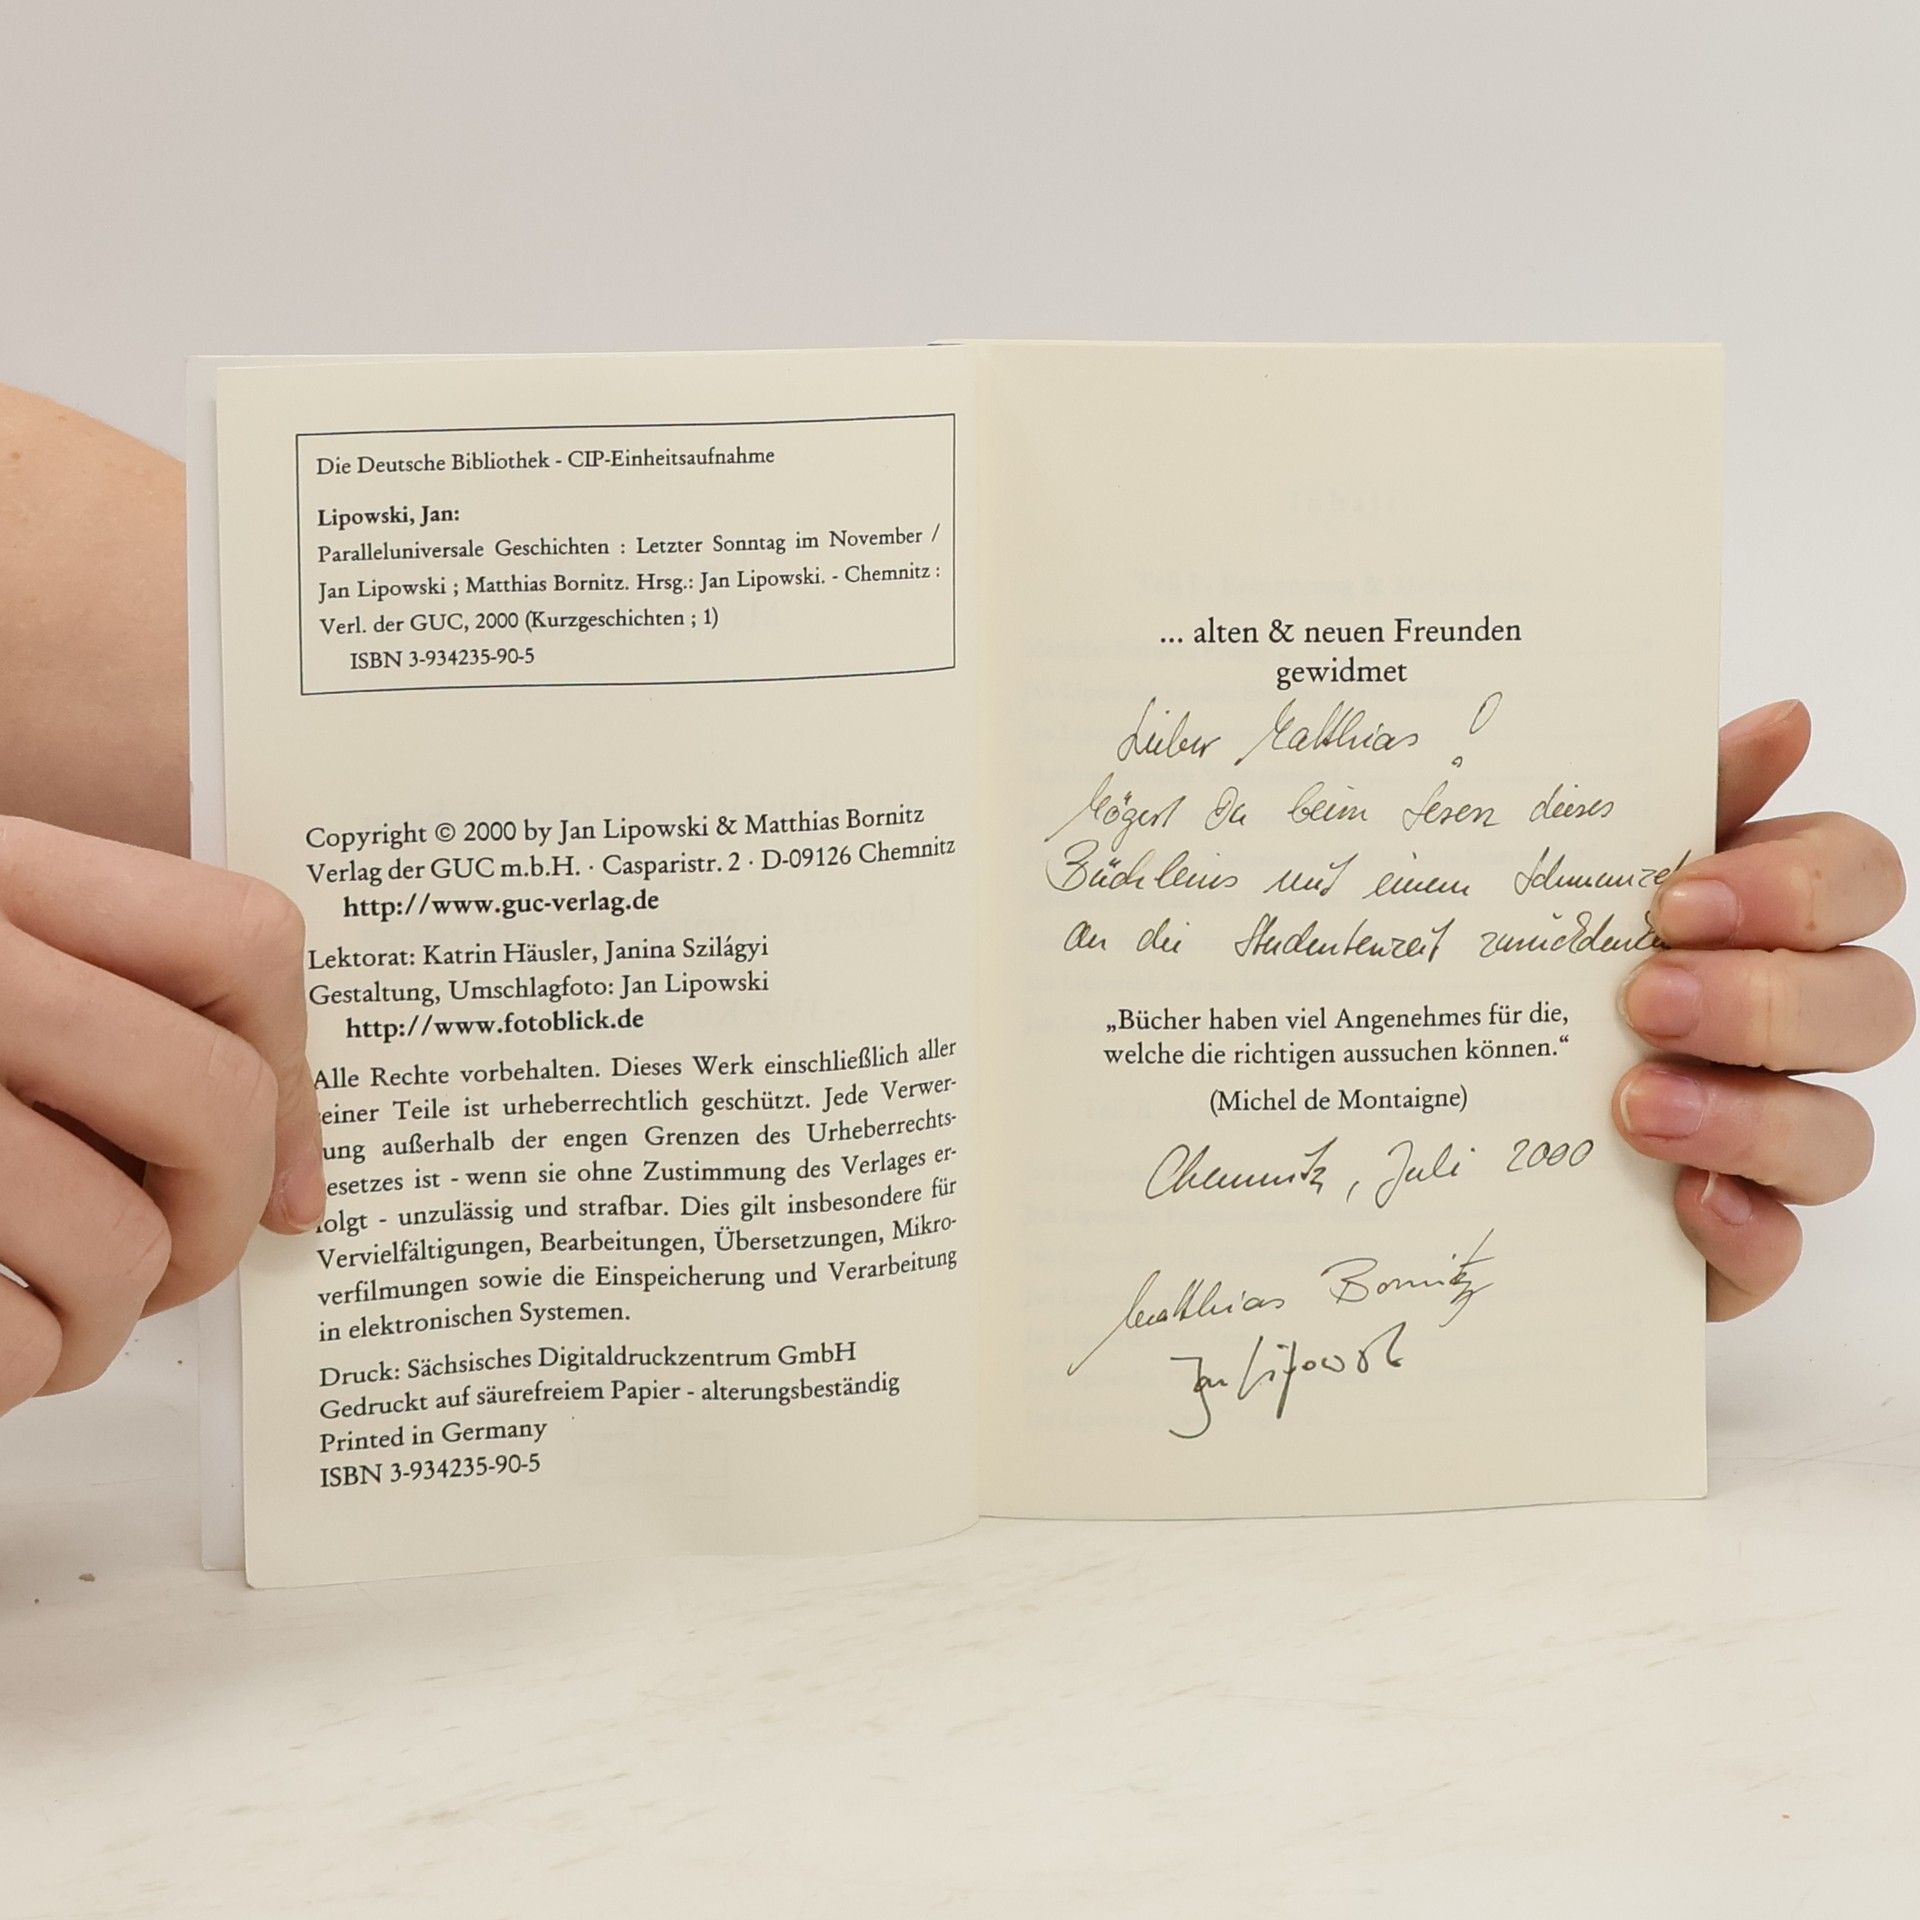 Die Deutsche Bibliothek - CIP-Einheitsaufnahme
Lipowski, Jan:
Paralleluniversale Geschichten : Letzter Sonntag im November /
Jan Lipowski ; Matthias Bornitz. Hrsg.: Jan Lipowski. - Chemnitz :
Verl. der GUC, 2000 (Kurzgeschichten ; 1)
ISBN 3-934235-90-5
Copyright © 2000 by Jan Lipowski & Matthias Bornitz
Verlag der GUC m.b.H. · Casparistr. 2 · D-09126 Chemnitz
http://www.guc-verlag.de
Lektorat: Katrin Häusler, Janina Szilágyi
Gestaltung, Umschlagfoto: Jan Lipowski
http://www.fotoblick.de
Alle Rechte vorbehalten. Dieses Werk einschließlich aller
einer Teile ist urheberrechtlich geschützt. Jede Verwer-
ung außerhalb der engen Grenzen des Urheberrechts-
esetzes ist - wenn sie ohne Zustimmung des Verlages er-
folgt - unzulässig und strafbar. Dies gilt insbesondere für
Vervielfältigungen, Bearbeitungen, Übersetzungen, Mikro-
verfilmungen sowie die Einspeicherung und Verarbeitung
in elektronischen Systemen.
Druck: Sächsisches Digitaldruckzentrum GmbH
Gedruckt auf säurefreiem Papier - alterungsbeständig
Printed in Germany
ISBN 3-934235-90-5
... alten & neuen Freunden
gewidmet
Lieber Matthias!
Mögest Du beim Lesen dieses
Büchleins mit einem Schmunzel
an die Studentenzeit zurückdenken
„Bücher haben viel Angenehmes für die,
welche die richtigen aussuchen können.“
(Michel de Montaigne)
Chemnitz, Juli 2000
Matthias Bornitz
Jan Lipowski